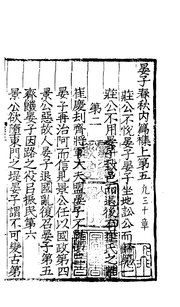 晏子春秋內篇襍上第五 凡三十章
莊公不悅晏子晏子坐地訟公而歸第一
莊公不用晏子晏子致邑而退後有崔氏之禍
第二
崔慶劫齊將軍大夫盟晏子不與第三
晏子再治阿而信見景公任以國政第四
景公惡故人晏子退國亂復召晏子第五
齊饑晏子因路寢之役以振民第六
景公欲墮東門之堤晏子謂不可變古第